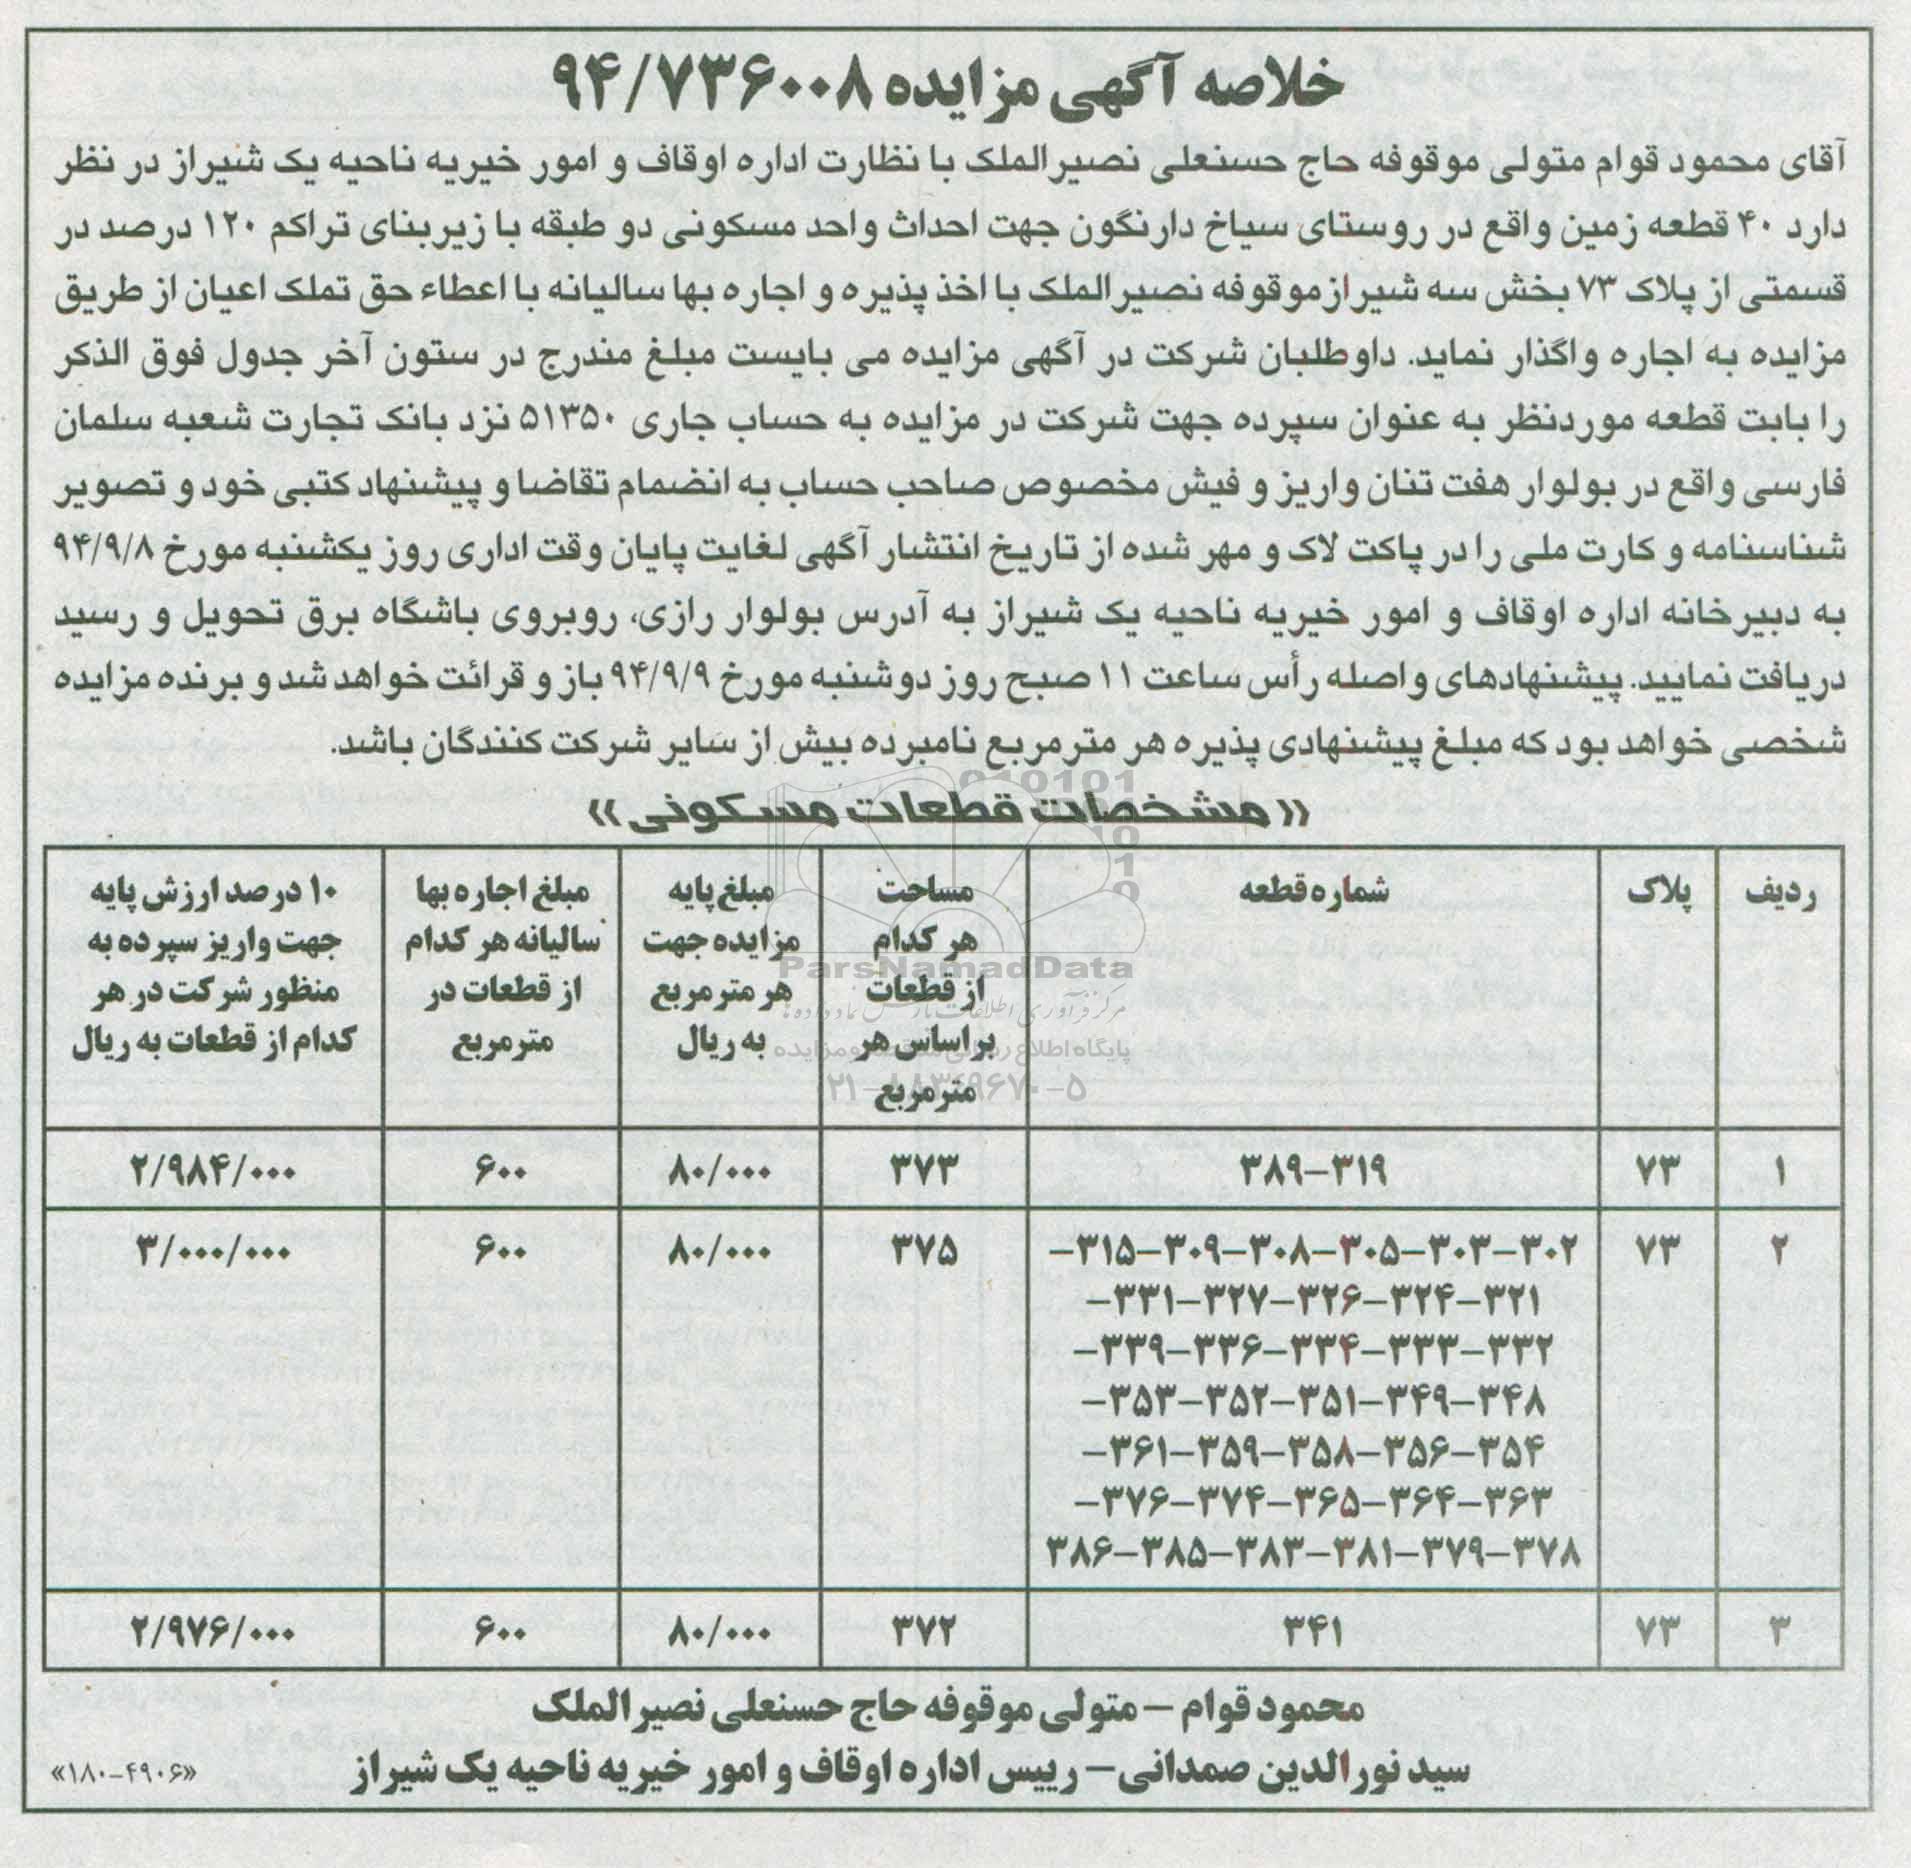 خلاصه آگهی مزایده ۹۴/۷۳۶۰۰۸
آقای محمود قوام متولی موقوفه حاج حسنعلی نصیرالملک با نظارت اداره اوقاف و امور خیریه ناحیه یک شیراز در نظر
دارد ۴۰ قطعه زمین واقع در روستای سیاخ دارنگون جهت احداث واحد مسکونی دو طبقه با زیربنای تراکم ۱۲۰ درصد در
قسمتی از پلاک ۷۳ بخش سه شیراز موقوفه نصیرالملک با اخذ پذیره و اجاره بها سالیانه با اعطاء حق تملک اعیان از طریق
مزایده به اجاره واگذار نماید. داوطلبان شرکت در آگهی مزایده می بایست مبلغ مندرج در ستون آخر جدول فوق الذکر
را بابت قطعه موردنظر به عنوان سپرده جهت شرکت در مزایده به حساب جاری ۵۱۳۵۰ نزد بانک تجارت شعبه سلمان
فارسی واقع در بولوار هفت تنان واریز و فیش مخصوص صاحب حساب به انضمام تقاضا و پیشنهاد کتبی خود و تصویر
شناسنامه و کارت ملی را در پاکت لاک و مهر شده از تاریخ انتشار آگهی لغایت پایان وقت اداری روز یکشنبه مورخ ۹۴/۹/۸
به دبیرخانه اداره اوقاف و امور خیریه ناحیه یک شیراز به آدرس بولوار رازی، روبروی باشگاه برق تحویل و رسید
دریافت نمایید. پیشنهادهای واصله رأس ساعت ۱۱ صبح روز دوشنبه مورخ ۹۴/۹/۹ باز و قرائت خواهد شد و برنده مزایده
شخصی خواهد بود که مبلغ پیشنهادی پذیره هر مترمربع نامبرده بیش از سایر شرکت کنندگان باشد.
«مشخصات قطعات مسکونی»
ردیف پلاک شماره قطعه مساحت مبلغ پایه مبلغ اجاره بها ۱۰ درصد ارزش پایه
هر کدام مزایده جهت سالیانه هر کدام جهت واریز سپرده به
از قطعات هر مترمربع از قطعات در منظور شرکت در هر
براساس هر به ریال مترمربع کدام از قطعات به ریال
مترمربع
۱ ۷۳ ۳۱۹-۳۸۹ ۳۷۳ ۸۰/۰۰۰ ۶۰۰ ۲/۹۸۴/۰۰۰
۲ ۷۳ ۳۰۲-۳۰۳-۳۰۵-۳۰۸-۳۰۹-۳۱۵- ۳۷۵ ۸۰/۰۰۰ ۶۰۰ ۳/۰۰۰/۰۰۰
۳۲۱-۳۲۴-۳۲۶-۳۲۷-۳۳۱-
۳۳۲-۳۳۳-۳۳۴-۳۳۶-۳۳۹-
۳۴۸-۳۴۹-۳۵۱-۳۵۲-۳۵۳-
۳۵۴-۳۵۶-۳۵۸-۳۵۹-۳۶۱-
۳۶۳-۳۶۴-۳۶۵-۳۷۴-۳۷۶-
۳۷۸-۳۷۹-۳۸۱-۳۸۳-۳۸۵-۳۸۶
۳ ۷۳ ۳۴۱ ۳۷۲ ۸۰/۰۰۰ ۶۰۰ ۲/۹۷۶/۰۰۰
محمود قوام - متولی موقوفه حاج حسنعلی نصیرالملک
سید نورالدین صمدانی - رییس اداره اوقاف و امور خیریه ناحیه یک شیراز
«۱۸۰-۴۹۰۶»
ParsNamadData